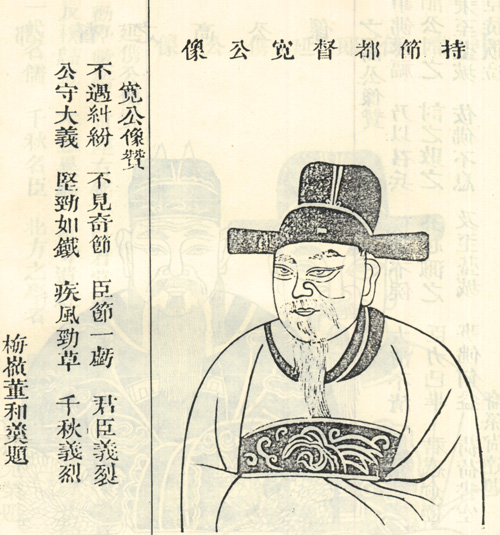 持節都督寬公像
寬公像贊
不遇糾紛 不見奇節 臣節一虧 君臣義裂
公守大義 堅勁如鐵 疾風勁草 千秋義烈
董和羹題